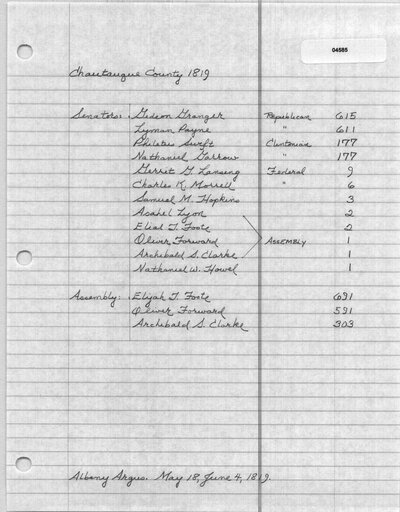 04585
Chautauque County 1819
Senators: Gideon Granger Republican 615
Lyman Payne " 611
Philetus Swift Clintonian 177
Nathaniel Garrow 177
Gerret G. Lansing Federal 9
Charles K. Morrell " 6
Samuel M. Hopkins 3
Asahel Lyon 2
Elial T. Foote 2
Oliver Forward ASSEMBLY 1
Archibald S. Clarke 1
Nathaniel W. Howel 1
Assembly: Elijah T. Foote 691
Oliver Forward 591
Archibald S. Clarke 303
Albany Argus. May 18, June 4, 1819.